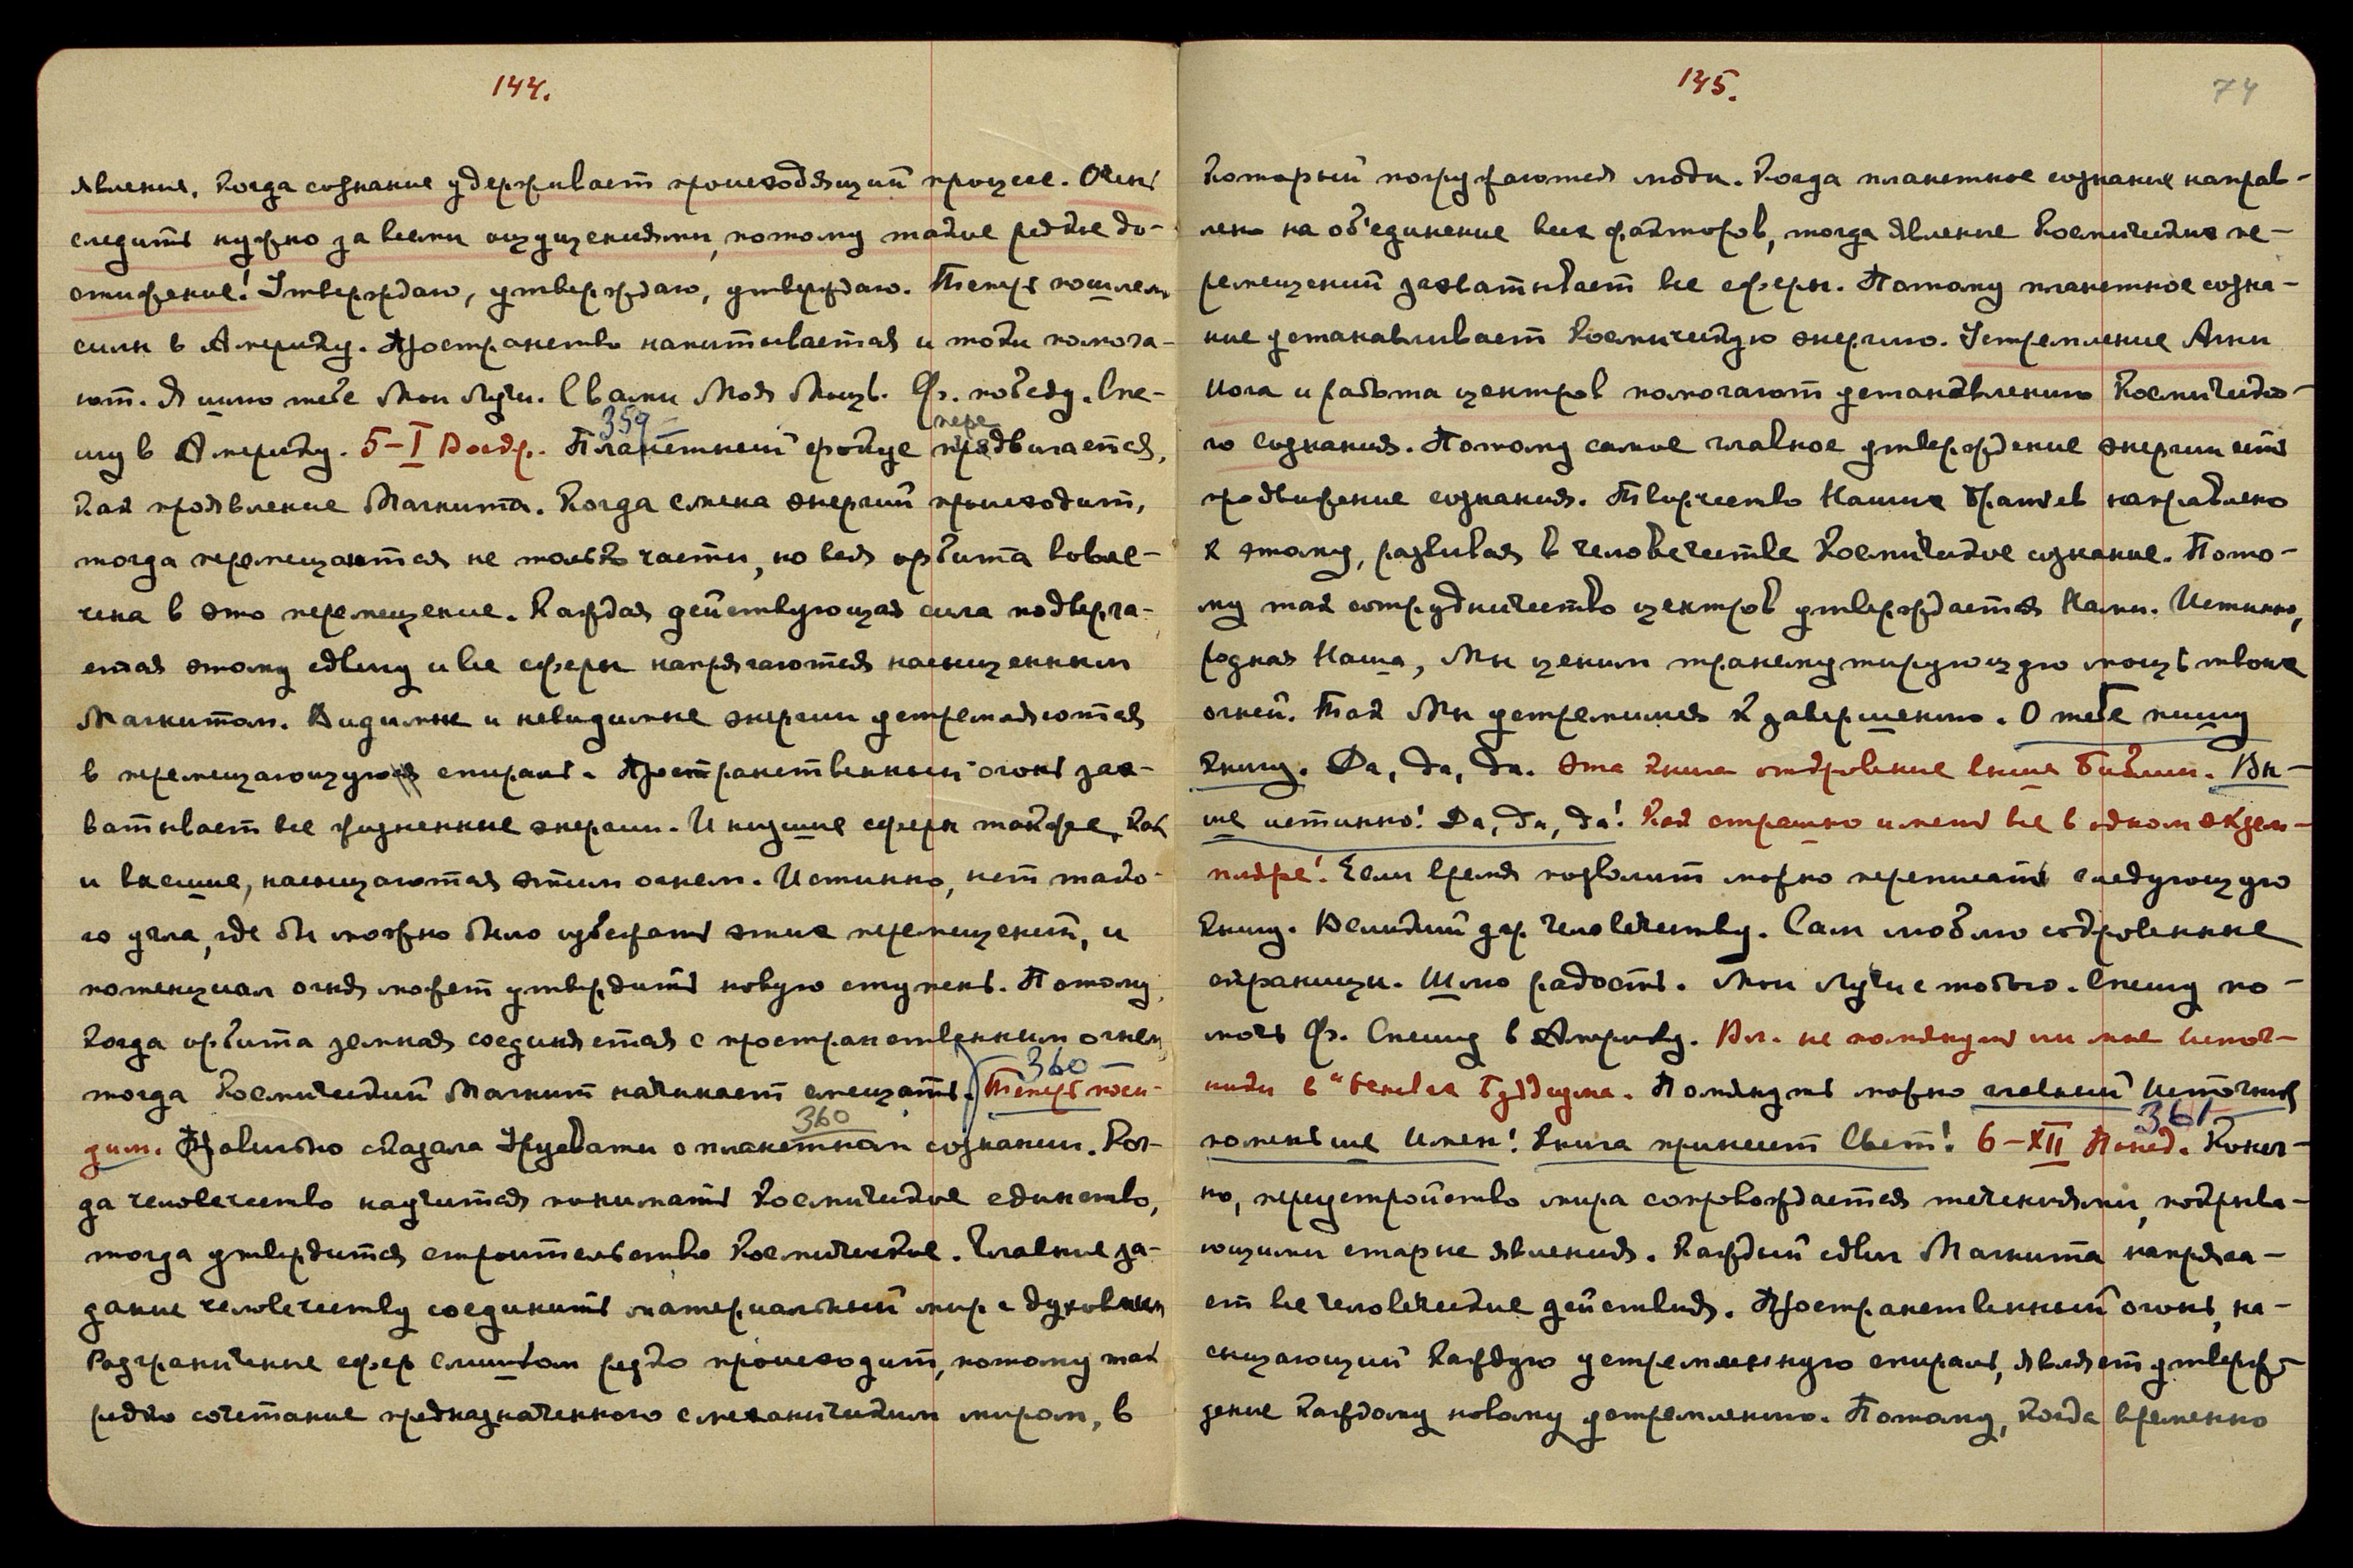 144.
явление, когда сознание удерживает происходящий процесс. Очень
следить нужно за всеми ощущениями, потому такие редкие до-
стижение! Утверждаю, утверждаю, утверждаю. Теперь пошлем
силы в Америку. Пространство напитывается и токи помога-
ют. Я шлю тебе Мои Лучи. С вами Моя Мощь. Ф. победу. Спе-
359 пере
шу в Америку. 5-I Воскр. Планетный фокус продвигается,
как проявление Магнита. Когда смена энергий происходит,
тогда перемещаются не только части, но вся орбита вовле-
чена в это перемещение. Каждая действующая сила подверга-
ется этому сдвигу и все сферы напрягаются насыщенным
Магнитом. Видимые и невидимые энергии устремляются
в перемещающуюся спираль. Пространственный огонь зах-
ватывает все жизненные энергии. И низшие сферы также, как
и высшие, насыщаются этим огнем. Истинно, нет тако-
го угла, где бы можно было избежать этих перемещений, и
потенциал огня может утвердить новую ступень. Потому,
когда орбита земная соединяется с пространственным огнем
360
тогда Космический Магнит начинает смещать. Теперь поси-
360
дим. Правильно сказала Урусвати о планетном сознании. Ког-
да человечество научится понимать Космическое единство,
тогда утвердится строительство Космическое. Главные за-
дание человечеству соединить материальный мир с духовным
Разграничение сфер слишком редко происходит, потому так
редко сочетание предназначенного с механическим миром, в
145.
74
который погружаются люди. Когда планетное сознание направ-
лено на об'единение всех факторов, тогда явление Космических пе-
ремещений захватывает все сферы. Потому планетное созна-
ние устанавливает Космическую энергию. Устремление Агни
Йога и работа центров помогают установлению Космическо-
го сознания. Потому самое главное утверждение энергии есть
продвижение сознания. Творчество Наших Братьев направлено
к этому, развивая в человечестве Космическое сознание. Пото-
му так сотрудничество центров утверждается Нами. Истинно,
родная Наша, Мы ценим трансмутирующую мощь твоих
огней. Так Мы устремимся к завершению. О тебе пишу
книгу. Да, да, да. Эта книга откровение выше Библии. Вы-
ше истинно! Да, да, да! Как страшно иметь все в одном экзем-
пляре! Если время позволит можно переписать следующую
книгу. Великий дар человечеству. Сам люблю сокровенные
страницы. Шлю радость. Мои Лучи с тобою. Спешу по-
мочь Ф. Спешу в Америку. Вл. не помянуть ли мне источ-
ники в "Основах Буддизма. Помянуть можно главный Источник
361
поменьше Имен! Книга принесет Свет! 6-XII Понед. Конеч-
но, переустройство мира сопровождается течениями, покрыва-
ющими старые явления. Каждый сдвиг Магнита напряга-
ет все человеческие действия. Пространственный огонь, на-
сыщающий каждую устремленную спираль, являет утверж-
дение каждому новому устремлению. Потому, когда временно